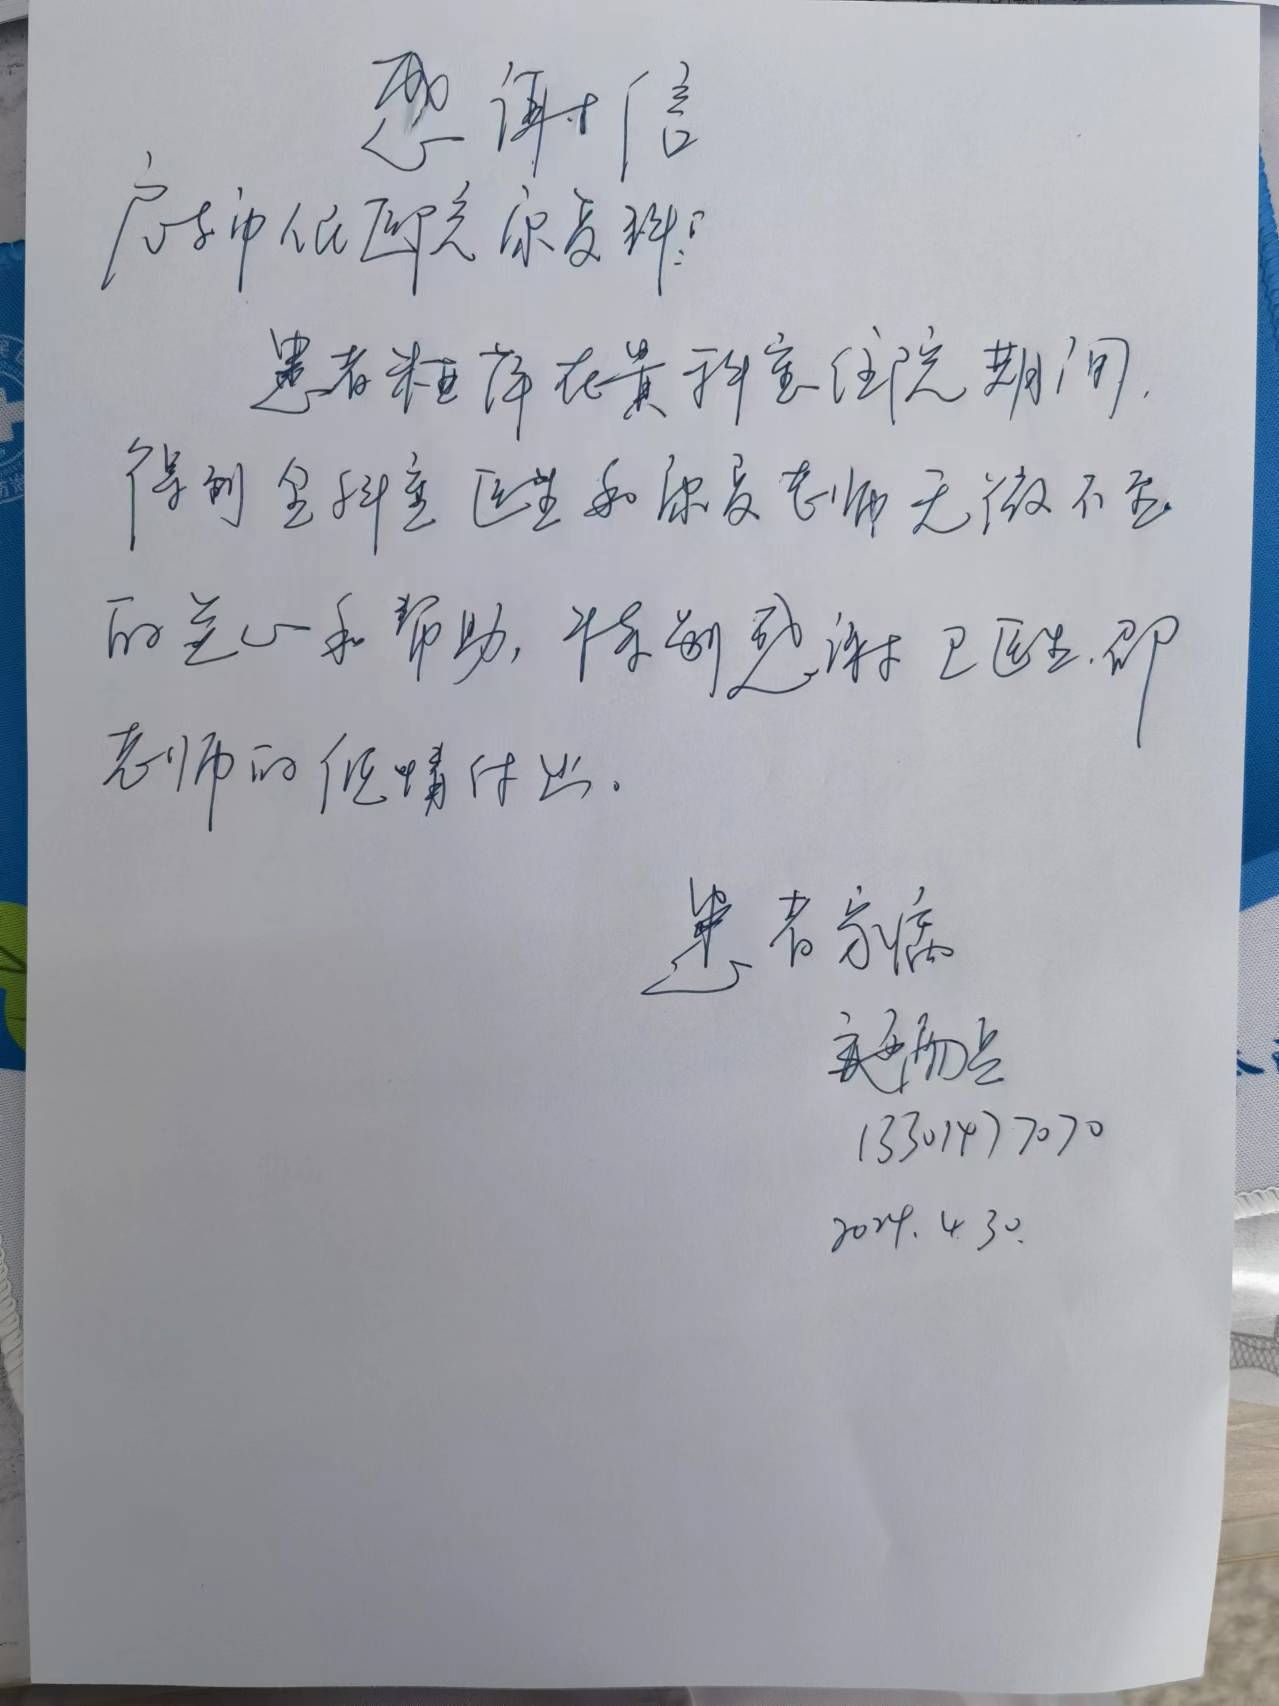 感谢信
启东市人民医院康复科:
患者 在贵科室住院期间,
得到全科室医生和康复老师无微不至
的关心和帮助,特别感谢卫医生、邵
老师的倾情付出。
患者家属
13301477070
2024.4.30.